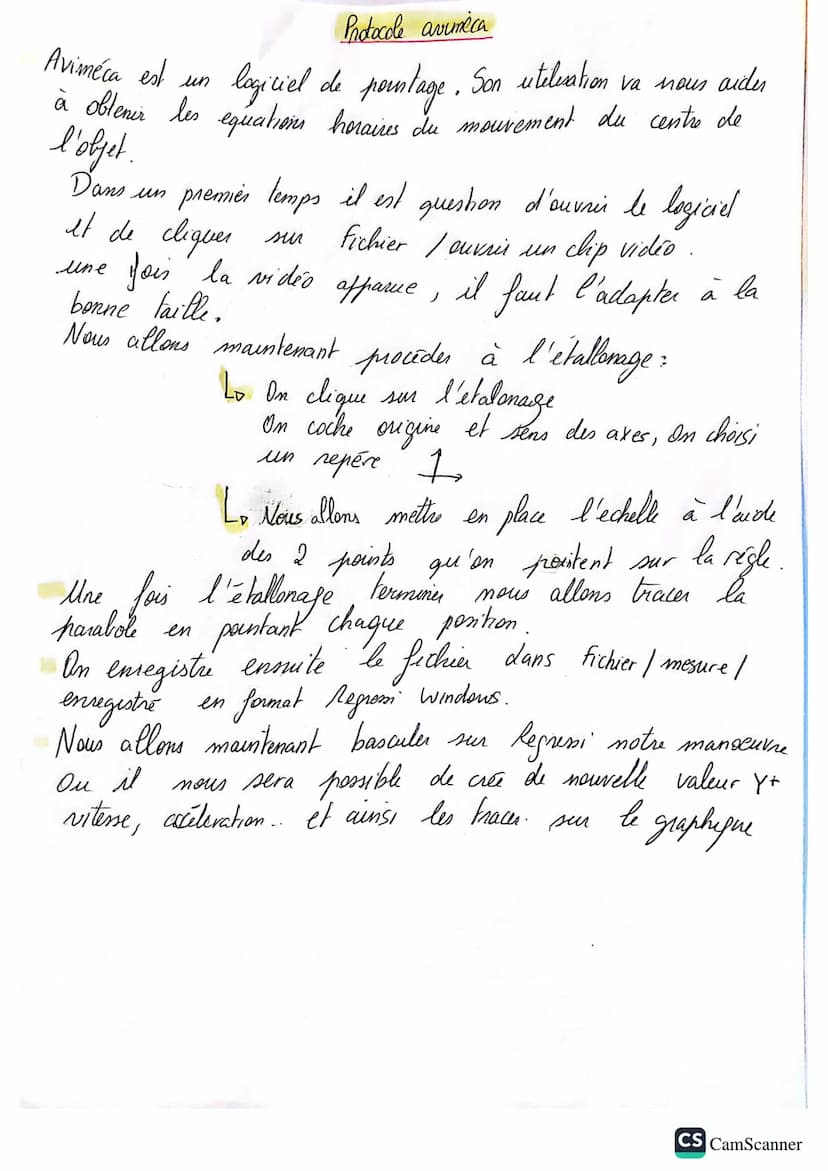 Protocole aviméca
Aviméca est un logiciel de pointage. Son utilisation va nous aider
à obtenir les equations horaires du mouvement du centre de
l'objet.
Dans un premier temps il est question d'ouvrir le logiciel
et de cliquer sur Fichier / ouvrir un clip vidéo.
une fois la vidéo apparue, il faut l'adapter à la
bonne taille.
Nous allons maintenant procéder à l'étallonage :
↳ On clique sur l'etalonage
On coche origine et sens des axes, on choisi
un repére
↳ Nous allons mettre en place l'echelle à l'aide
des 2 points qu'on sur la régle.
Une fois l'étallonage terminer nous allons tracer la
parabole en pointant chaque position.
On enregistre ensuite le fichier dans fichier / mesure /
enregistré en format Regressi Windows.
Nous allons maintenant basculer sur Regressi notre manoeuvre
Ou il nous sera possible de crée de nouvelle valeur Y+
vitesse, accéleration.. et ainsi les tracer. sur le graphique
CS CamScanner